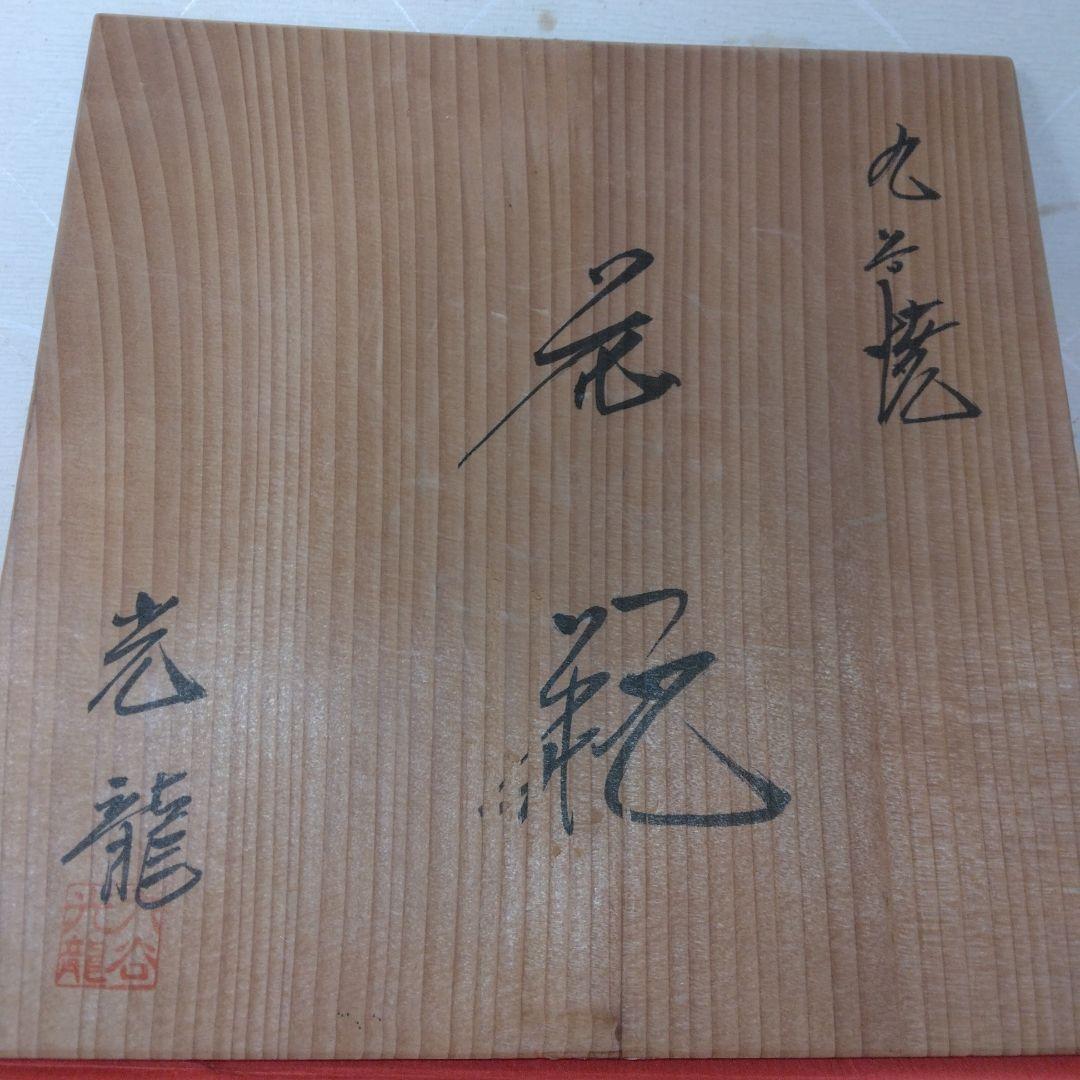 九谷焼
花瓶
光龍
九谷
光龍